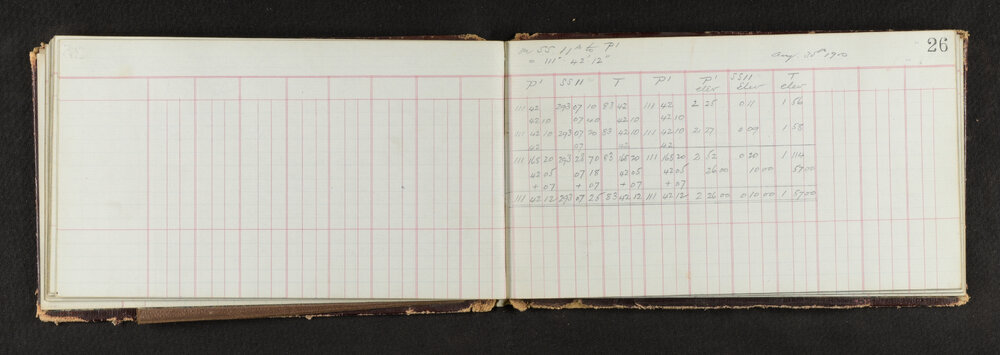 26
SS 11 to P'
= 111° 42' 12"
Aug 25th 1910
P' SS 11 T P' P' elev SS 11 elev T elev
111 42 293 07 10 83 42 111 42 2 25 0 11 1 56
42 10 07 40 42 10 42 10
111 42 10 293 07 20 83 42 10 111 42 10 2 27 0 09 1 58
42 07 42 42
111 168 20 293 28 70 83 168 20 111 168 20 2 52 0 20 1 114
42 05 07 18 42 05 42 05 26 00 10 00 57 00
+ 07 + 07 + 07 + 07
111 42 12 293 07 25 83 42 12 111 42 12 2 26 00 0 10 00 1 57 00